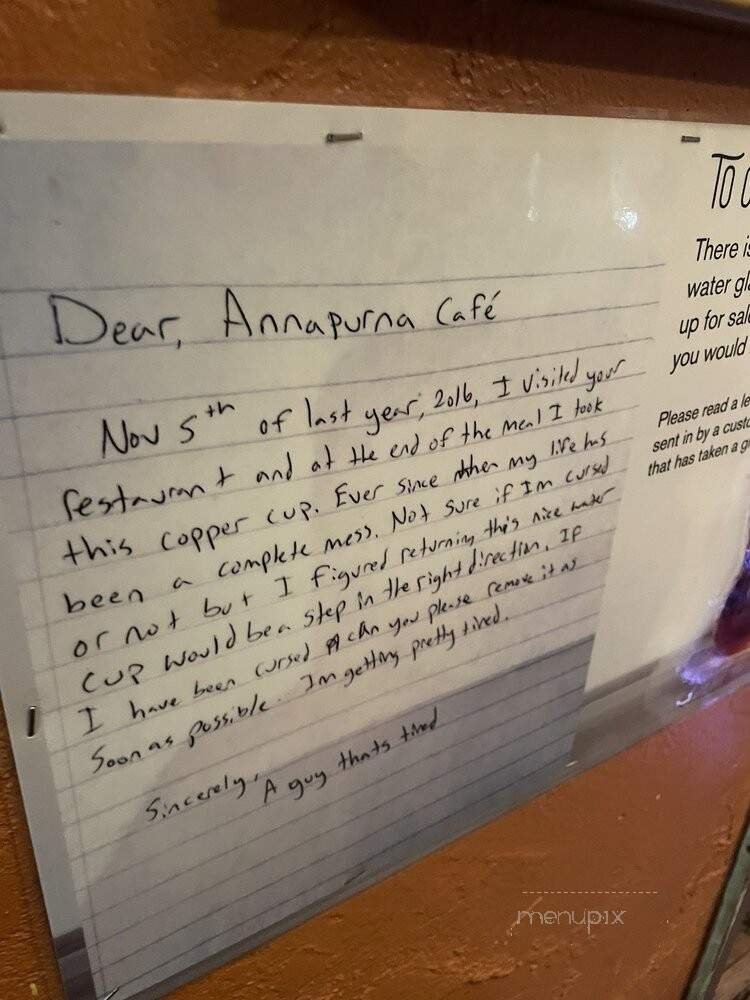 Dear, Annapurna Café
Nov 5th of last year, 2016, I visited your
restaurant and at the end of the meal I took
this copper cup. Ever since then my life has
been a complete mess. Not sure if Im cursed
or not but I figured returning this nice water
cup would be a step in the right direction. If
I have been cursed can you please remove it as
soon as possible. Im getting pretty tired.
Sincerely,
A guy thats tired
To
There is
water gl
up for sal
you would
Please read a le
sent in by a custo
that has taken a g
menupix